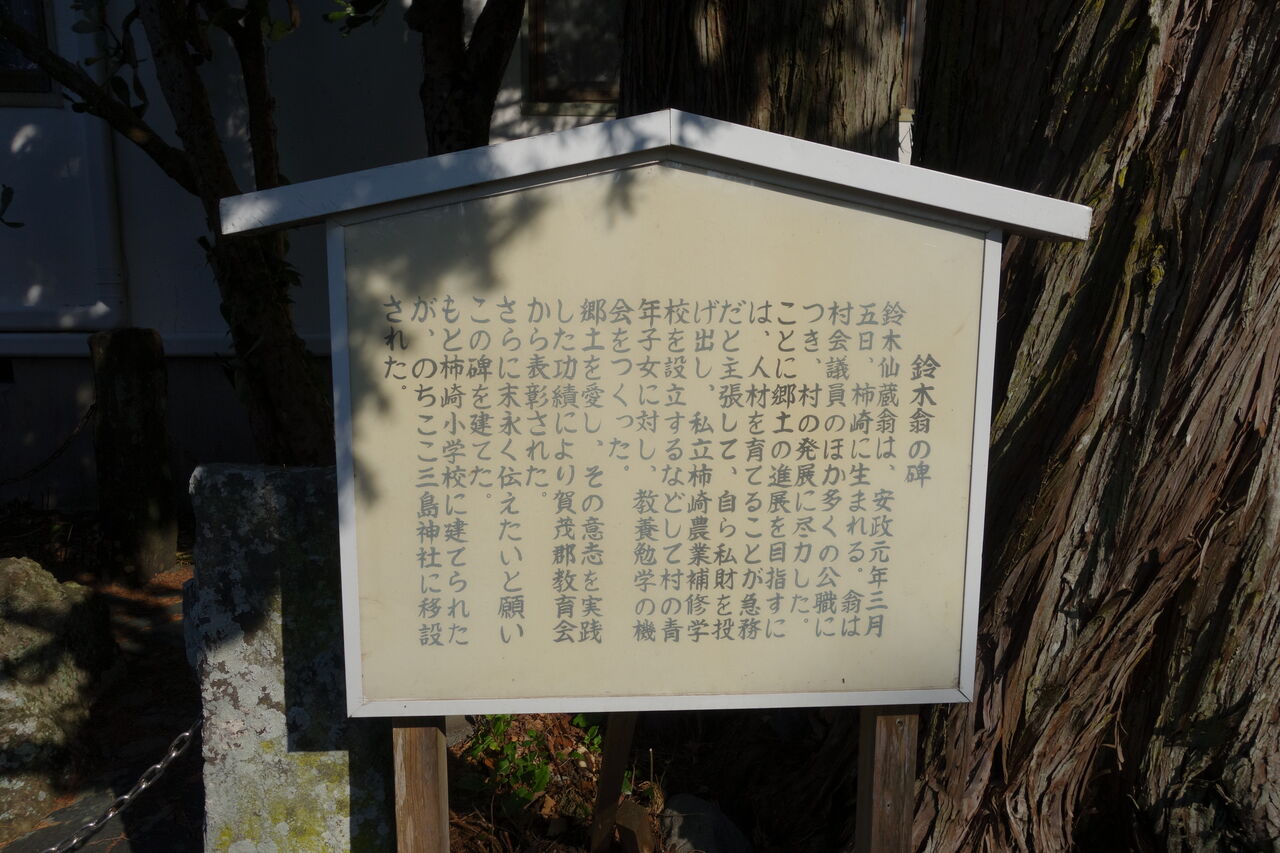 鈴木翁の碑
鈴木仙蔵翁は、安政元年三月
五日、柿崎に生まれる。翁は
村会議員のほか多くの公職に
つき、村の発展に尽力した。
ことに郷土の進展を目指すに
は、人材を育てることが急務
だと主張して、自ら私財を投
げ出し、私立柿崎農業補修学
校を設立するなどして村の青
年子女に対し、教養勉学の機
会をつくった。
郷土を愛し、その意志を実践
した功績により賀茂郡教育会
から表彰された。
さらに末永く伝えたいと願い
この碑を建てた。
もと柿崎小学校に建てられた
が、のちここ三島神社に移設
された。